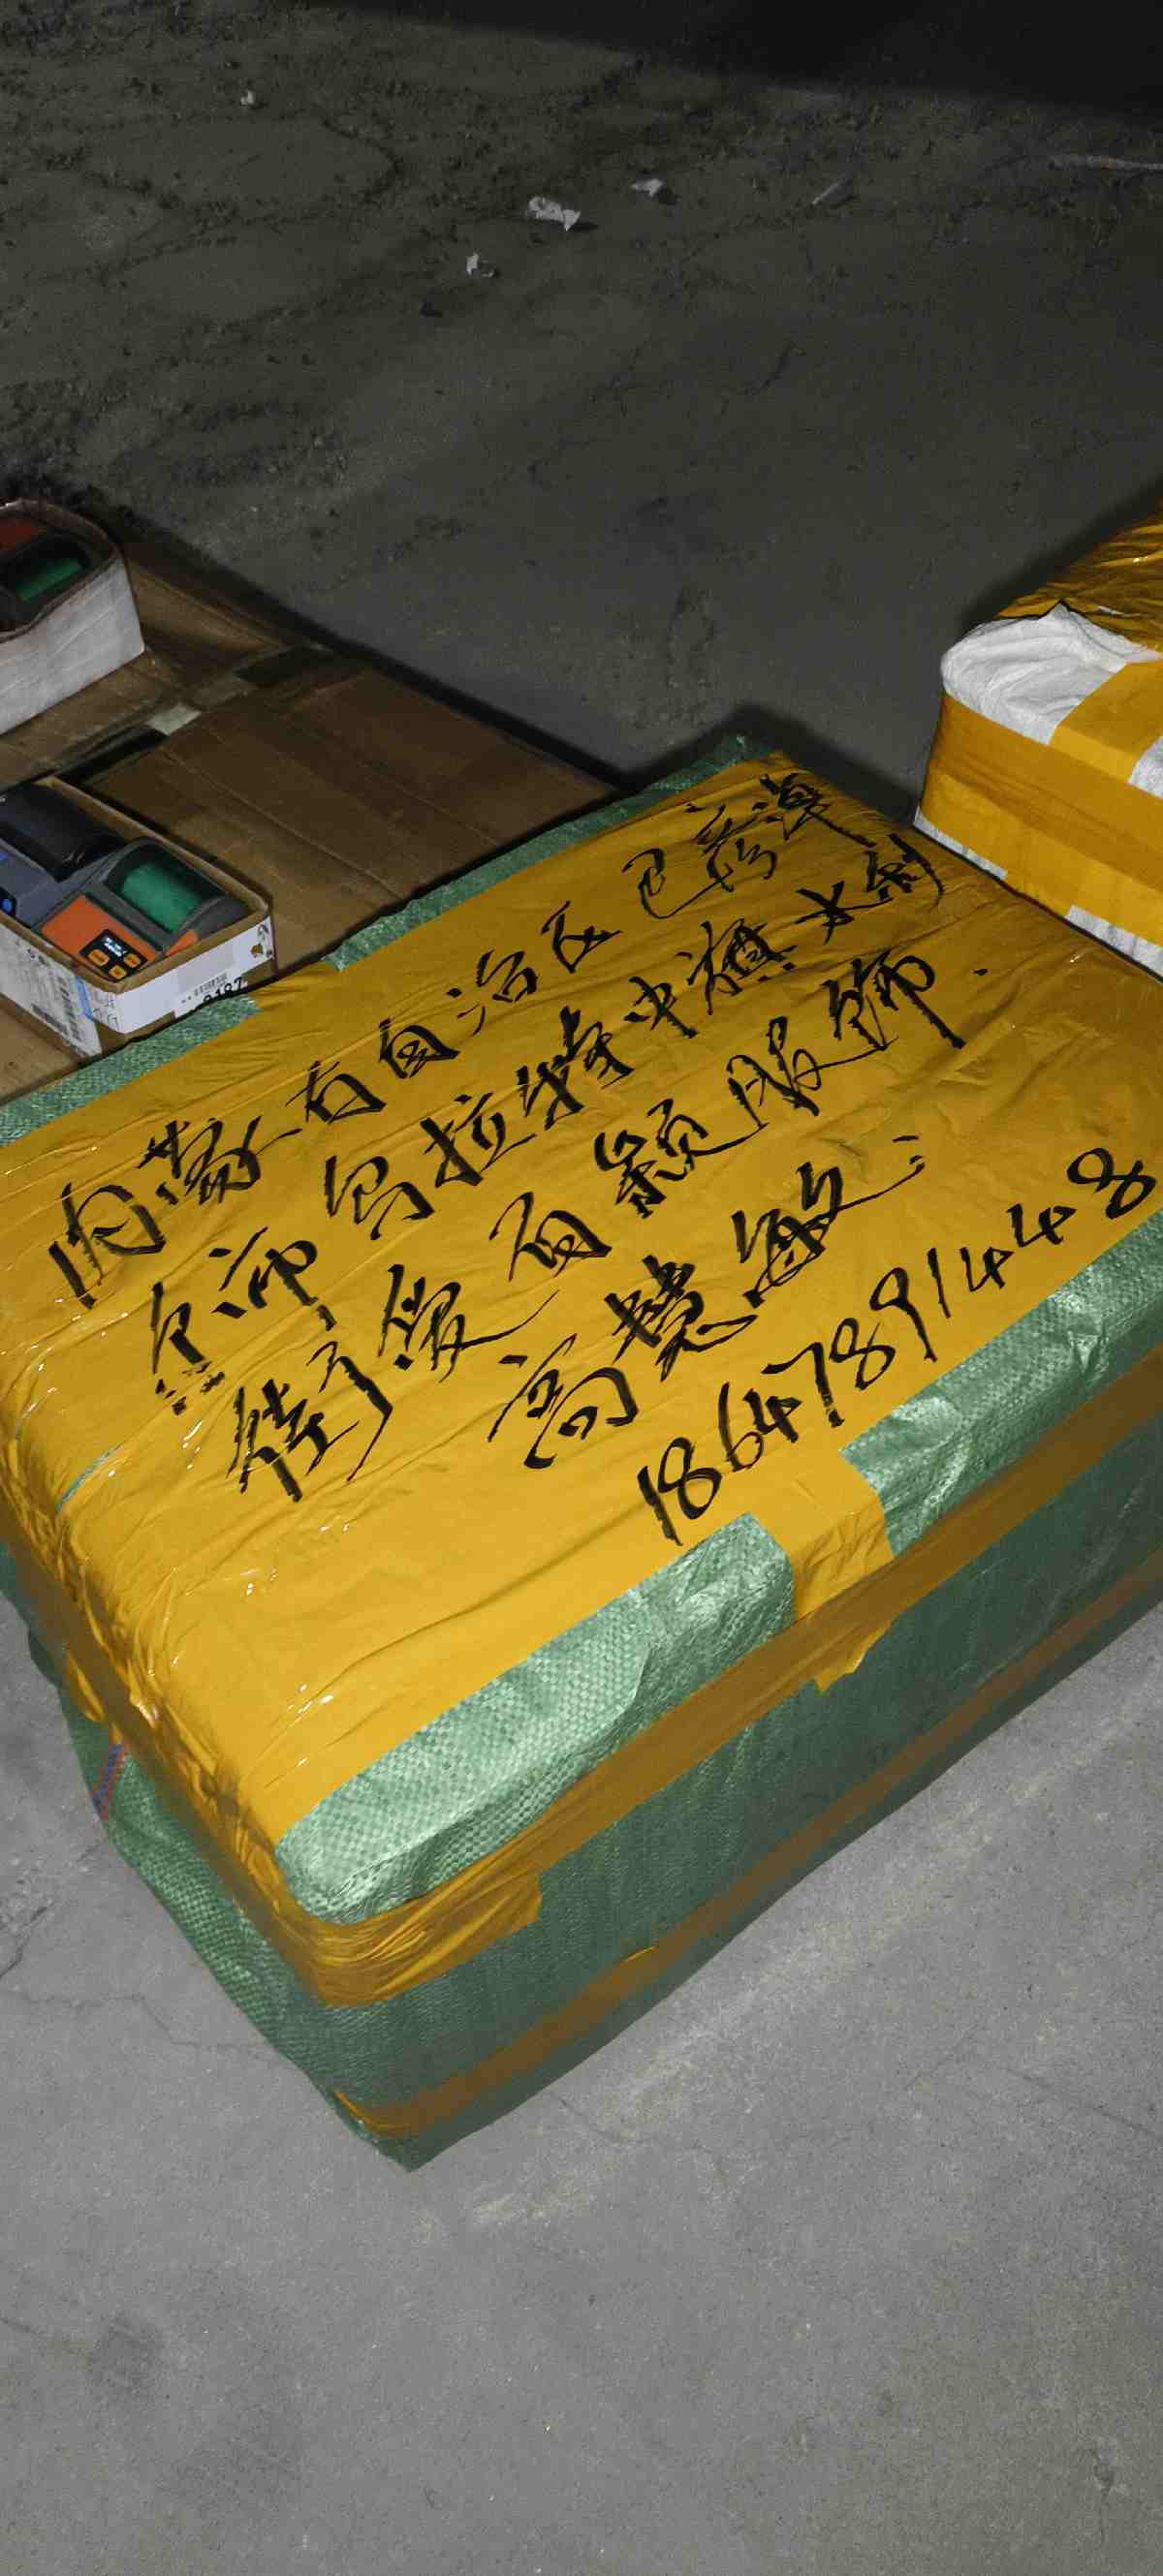 内蒙古自治区巴彦淖
尔市乌拉特中旗水利
街爱百颖服饰.
高慧敏:
18647891448